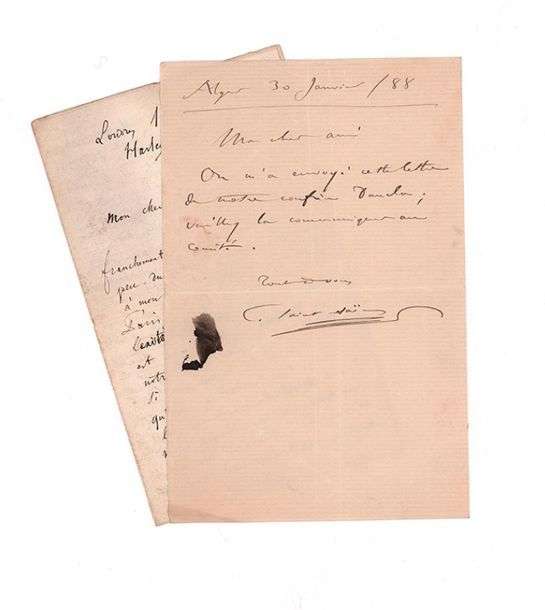 Alger 30 Janvier /88
Mon cher ami
On m'a envoyé cette lettre
de notre confrère Dancla ;
veuillez la communiquer au
comité.
Tout à vous
C. Saint-Saëns
London 1
Harley
Mon cher
franchement
peu
à mon
est
notre